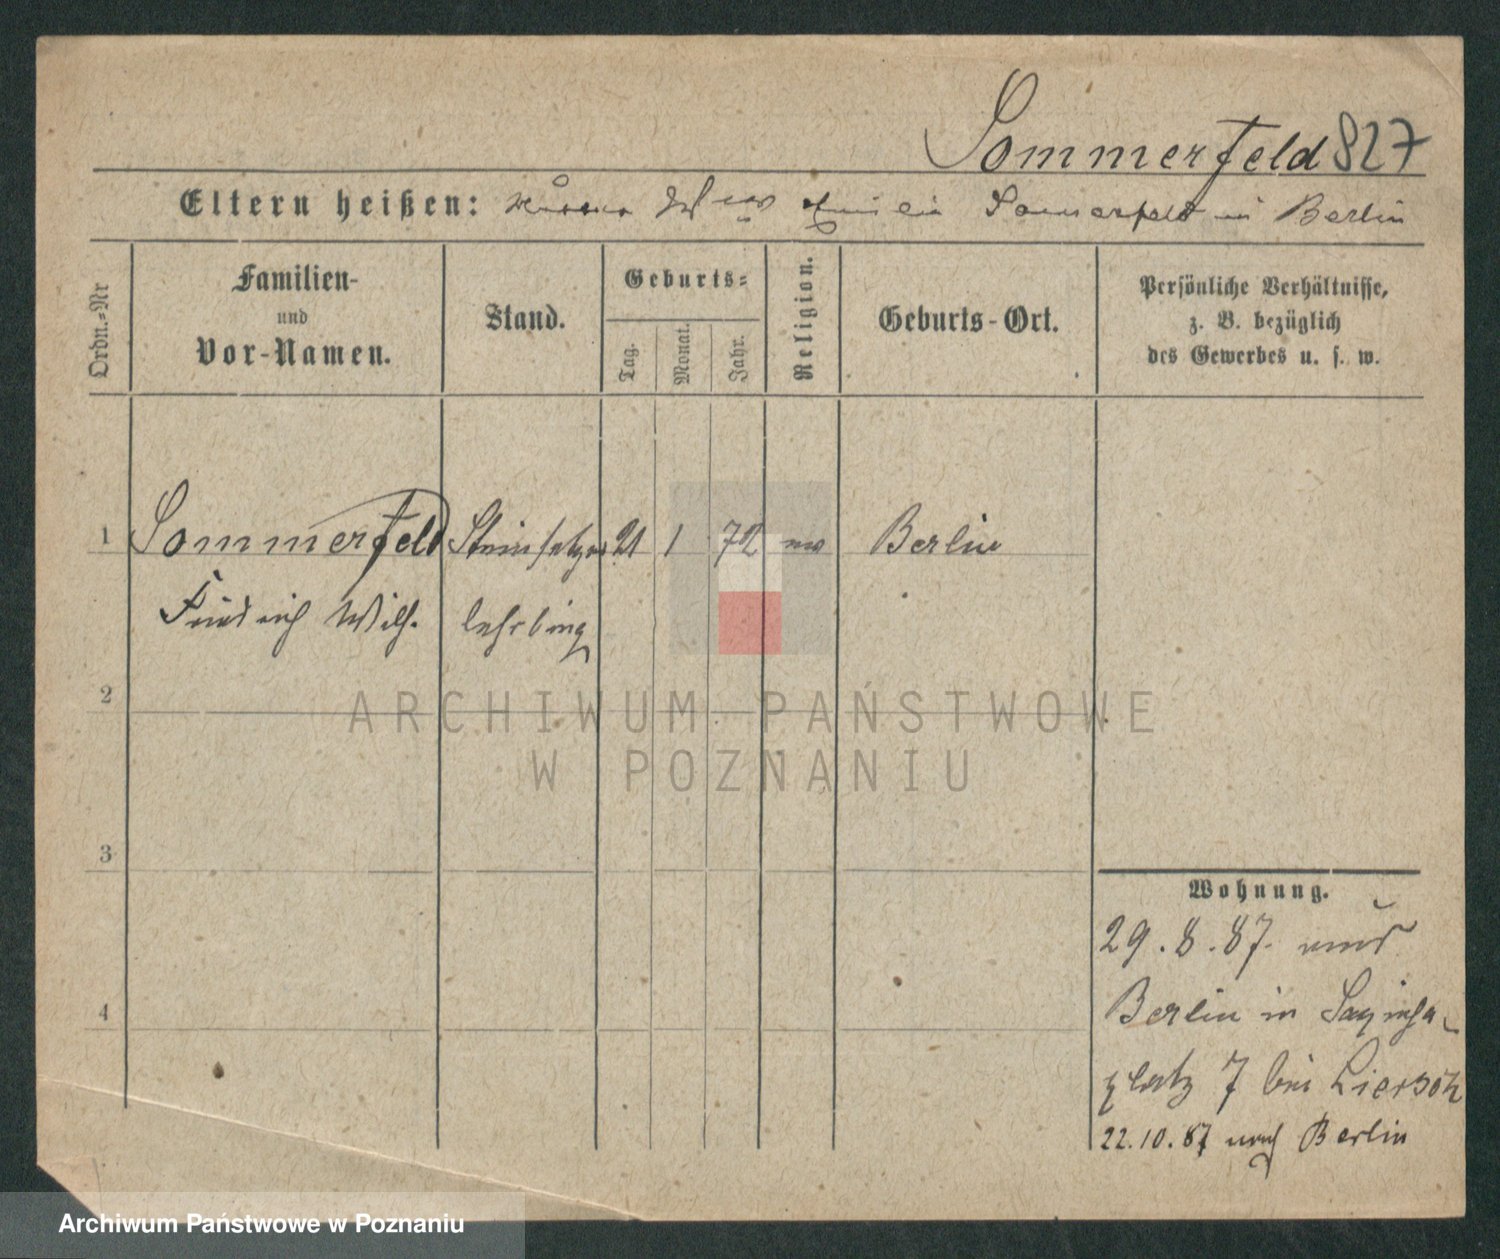 Sommerfeld 827
Eltern heißen: Sommerfeld in Berlin
Ordn.=Nr
Familien-
und
Vor-Namen.
Stand.
Geburts=
Tag.
Monat.
Jahr.
Religion.
Geburts-Ort.
Persönliche Verhältnisse,
z. B. bezüglich
des Gewerbes u. s. w.
1 Sommerfeld Steinsetzer 21 1 72 ev Berlin
Friedrich Wilh. lehrling
2
ARCHIWUM PAŃSTWOWE
W POZNANIU
3
Wohnung.
29.8.87.
Berlin in
4
platz 7 bei Liersch
22.10.87 nach Berlin
Archiwum Państwowe w Poznaniu